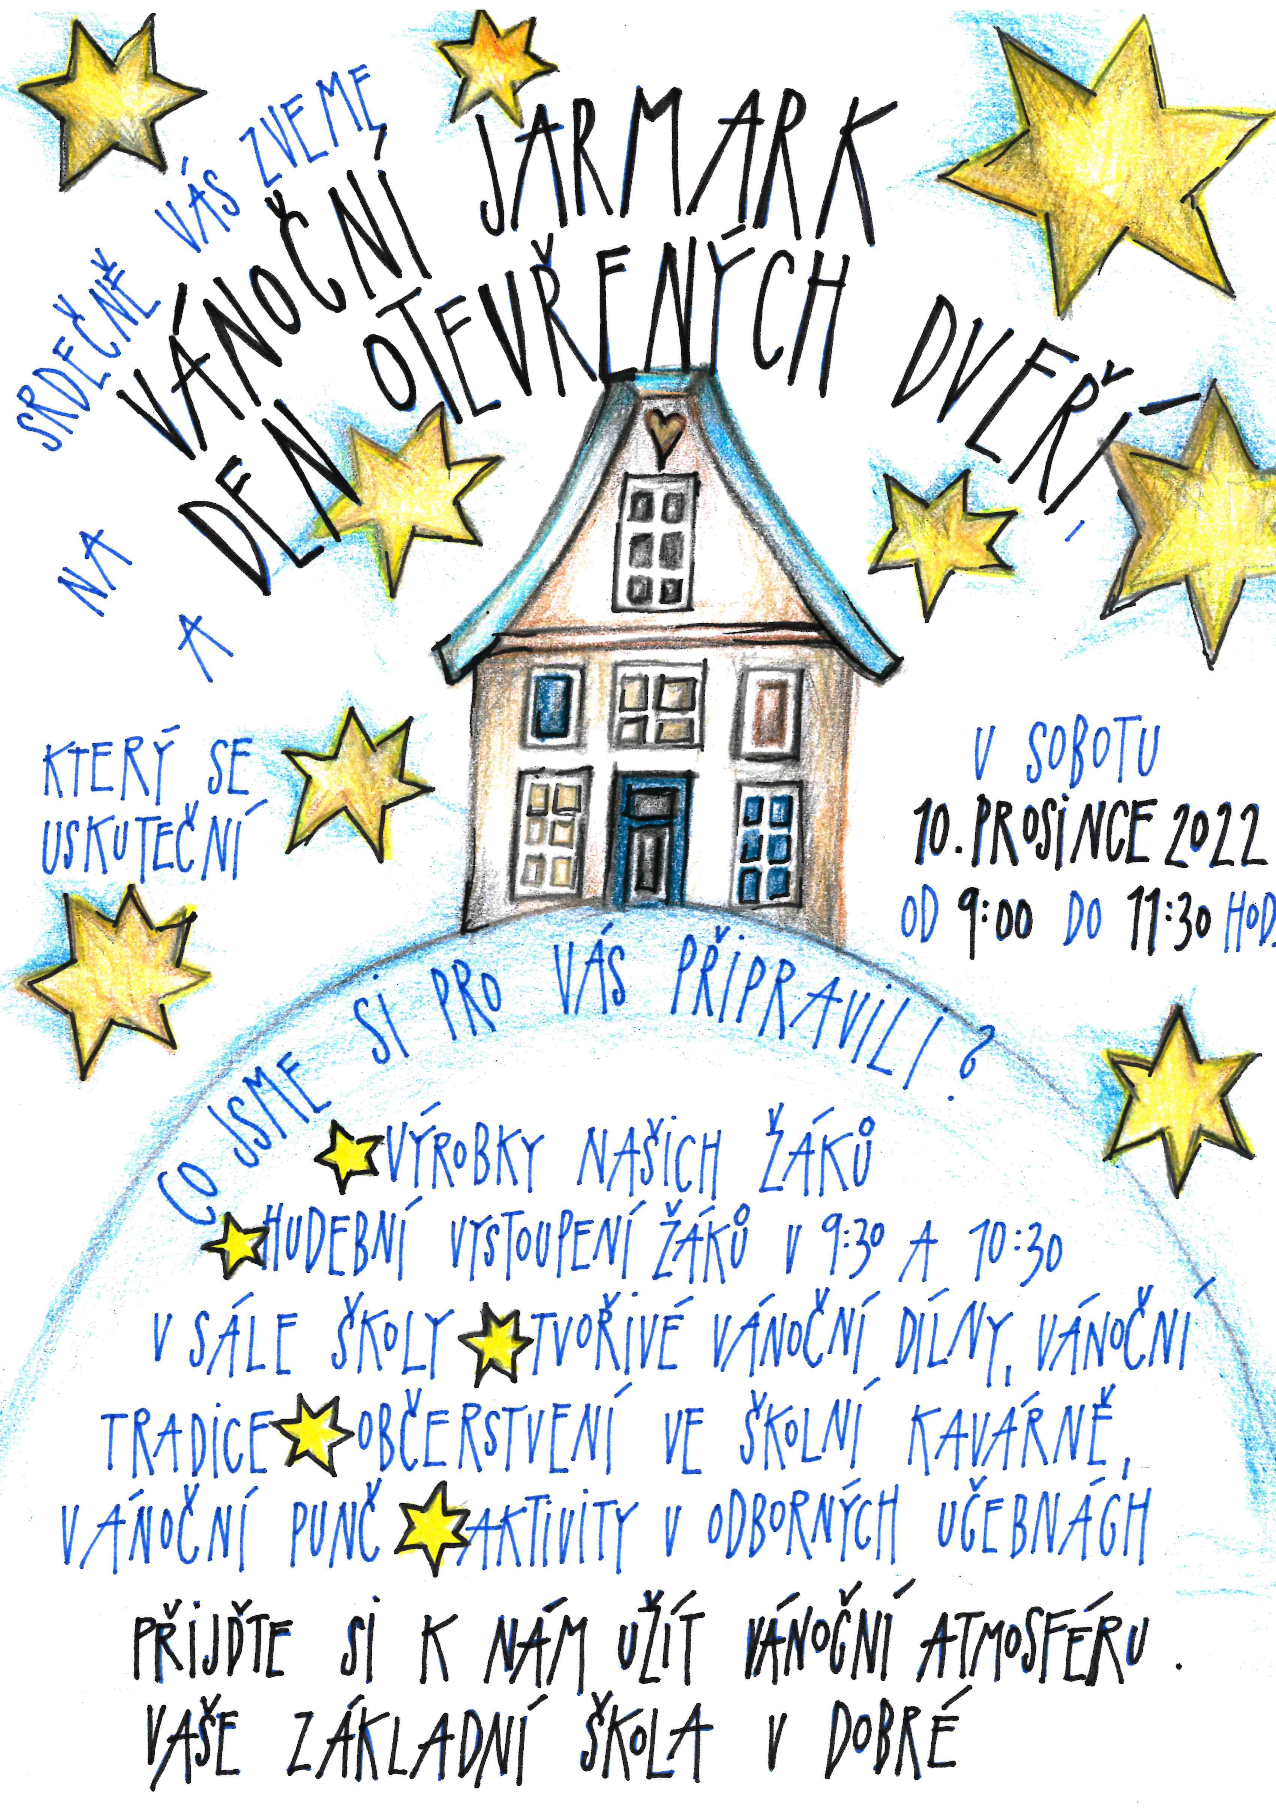 SRDEČNĚ VÁS ZVEME
NA VÁNOČNÍ JARMARK
A DEN OTEVŘENÝCH DVEŘÍ,
KTERÝ SE
USKUTEČNÍ
V SOBOTU
10. PROSINCE 2022
OD 9:00 DO 11:30 HOD.
CO JSME SI PRO VÁS PŘIPRAVILI?
VÝROBKY NAŠICH ŽÁKŮ
HUDEBNÍ VYSTOUPENÍ ŽÁKŮ V 9:30 A 10:30
V SÁLE ŠKOLY TVOŘIVÉ VÁNOČNÍ DÍLNY, VÁNOČNÍ
TRADICE OBČERSTVENÍ VE ŠKOLNÍ KAVÁRNĚ,
VÁNOČNÍ PUNČ AKTIVITY V ODBORNÝCH UČEBNÁCH
PŘIJĎTE SI K NÁM UŽÍT VÁNOČNÍ ATMOSFÉRU.
VAŠE ZÁKLADNÍ ŠKOLA V DOBRÉ